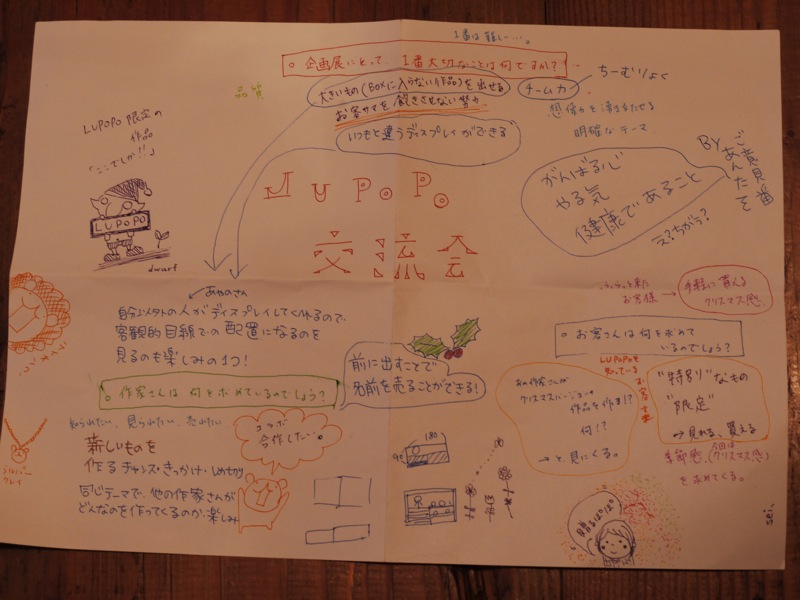 1番は難しい…。
○ 企画展にとって、1番大切なことは何ですか?
品質
大きいもの(BOXに入らない作品)を出せる
お客サマを飽きさせない努力
いつもと違うディスプレイができる
チームカ
ちーむりょく
想像力を湧き立たせる
明確なテーマ
LUPOPO 限定の
作品
「ここでしか!!」
LUPOPO
dwarf
ご意見番
BY あんたそ
がんばる心
やる気
健康であること
え?ちがう?
LuPoPo
交流会
ふらっと来た
お客様
手軽に買える
クリスマス感
あやのさん
自分以外の人がディスプレイしてくれるので、
客観的目線での配置になるのを
見るのも楽しみの1つ!
○ お客さんは何を求めて
いるのでしょう?
前に出すことで
名前を売ることができる!
○ 作家さんは 何を求めているのでしょう?
知られたい、見られたい、売れたい
新しいものを
作るチャンス・きっかけ・しめきり
同じテーマで、他の作家さんが
どんなのを作ってくるのか楽しみ
コラボ
合作したい。
シルバー
クレイ
180
LUPOPOを
知っている
お客さま
あの作家さんが
クリスマスバージョンの
作品を作ま!?
何!?
→と見にくる。
"特別"なもの
"限定"
→見れる、買える
季節感(今回はクリスマス感)
を求めてくる。
sei.